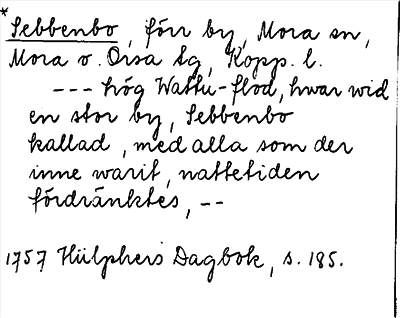 *
Sebbenbo, förr by, Mora sn,
Mora o. Orsa tg, Kopp. l.
--- hög Wattu-flod, hwar wid
en stor by, Sebbenbo
kallad, med alla som der
inne warit, nattetiden
fördränktes, --
1757 Hülphers Dagbok, s. 185.